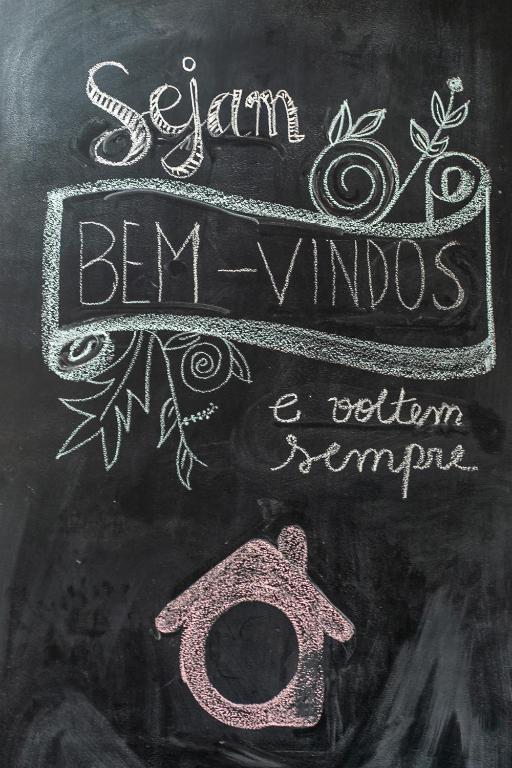 Sejam
BEM-VINDOS
e voltem
sempre